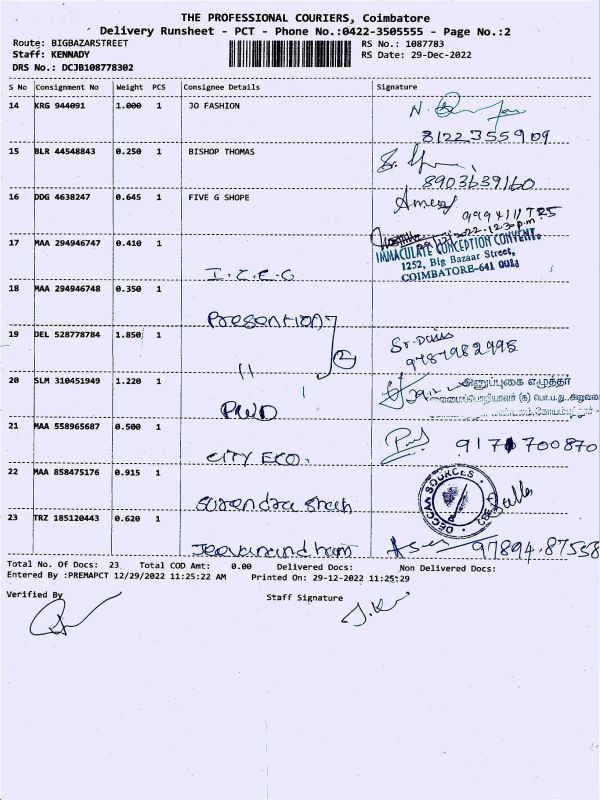 THE PROFESSIONAL COURIERS, Coimbatore
Delivery Runsheet - PCT - Phone No.:0422-3505555 - Page No.:2
Route: BIGBAZARSTREET
RS No.: 1087783
Staff: KENNADY
RS Date: 29-Dec-2022
DRS No.: DCJB108778302
S No Consignment No Weight PCS Consignee Details Signature
14 KRG 944091 1.000 1 JO FASHION
8122355909
15 BLR 44548843 0.250 1 BISHOP THOMAS
8903639160
16 DDG 4638247 0.645 1 FIVE G SHOPE
17 MAA 294946747 0.410 1
IMMACULATE CONCEPTION CONVENT,
1252, Big Bazaar Street,
COIMBATORE-641 001
I.C.E.G
18 MAA 294946748 0.350 1
Presention
19 DEL 528778784 1.850 1
11
2
9787982998
20 SLM 310451949 1.220 1
அனுப்புகை எழுத்தர்
PWD
21 MAA 558965687 0.500 1
9171700870
CITY ECO.
22 MAA 858475176 0.915 1
DECCAN SOURCES
CBE
Surendra shah
23 TRZ 185120443 0.620 1
Jeevanandham
97894.87558
Total No. Of Docs: 23 Total COD Amt: 0.00 Delivered Docs: Non Delivered Docs:
Entered By :PREMAPCT 12/29/2022 11:25:22 AM Printed On: 29-12-2022 11:25:29
Verified By
Staff Signature